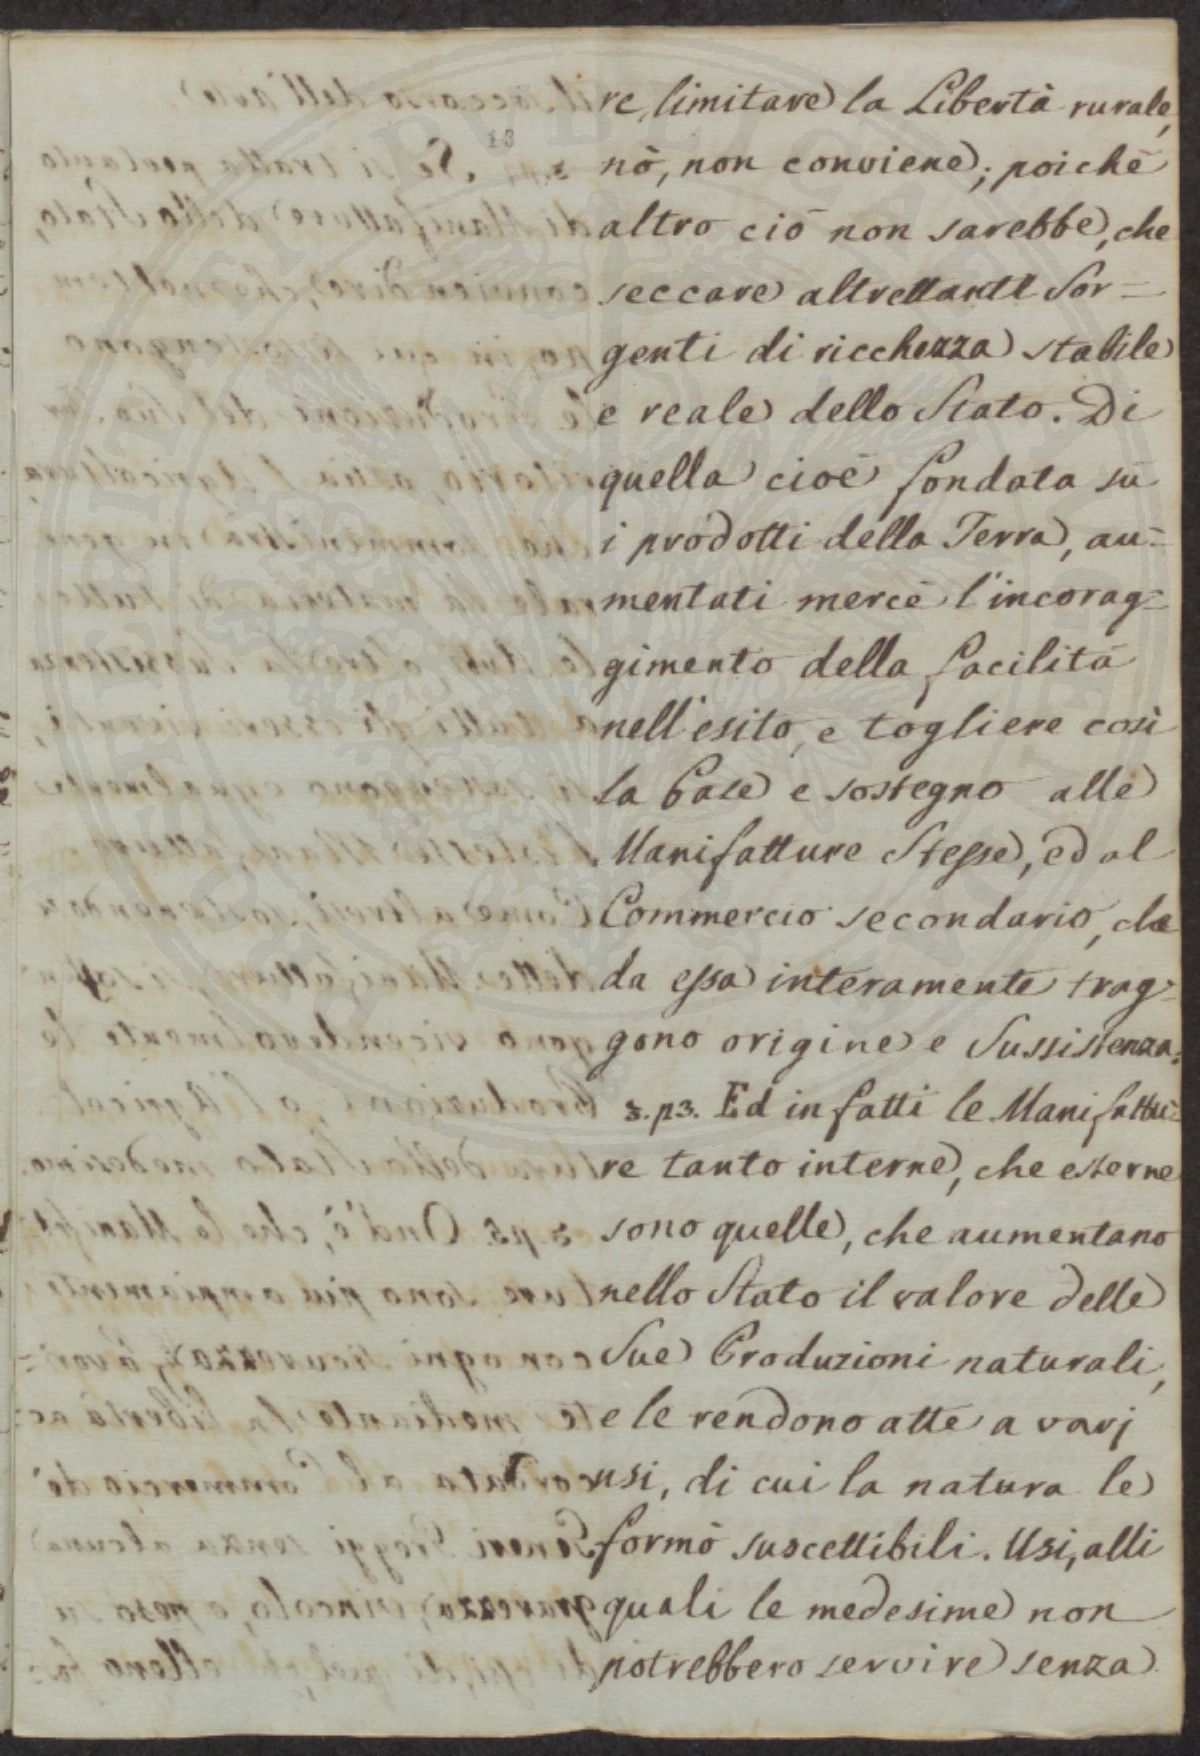 re, limitare la Libertà rurale,
13
nò, non conviene; poichè
altro ciò non sarebbe, che
seccare altrettanti Sor=
genti di ricchezza stabile
e reale dello Stato. Di
quella cioè fondata sù
i prodotti della Terra, au=
mentati mercè l'incorag=
gimento della facilità
nell'esito, e togliere così
la Base e sostegno alle
Manifatture Stesse, ed al
Commercio secondario, che
da essa interamente trag=
gono origine e Sussistenza.
3. p3. Ed in fatti le Manifattu=
re tanto interne, che esterne
sono quelle, che aumentano
nello Stato il valore delle
Sue Produzioni naturali,
e le rendono atte a varj
usi, di cui la natura le
formò suscettibili. Usi, alli
quali le medesime non
potrebbero servire senza